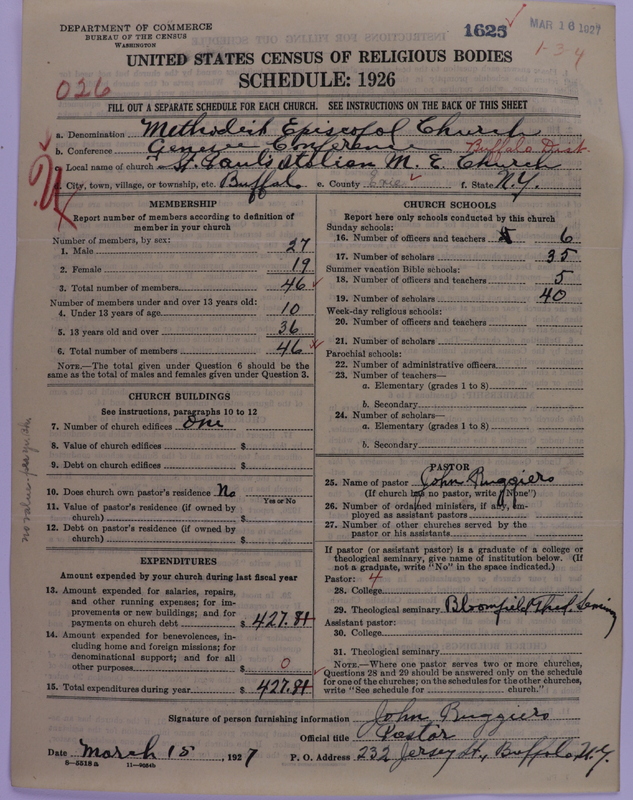 DEPARTMENT OF COMMERCE
BUREAU OF THE CENSUS
WASHINGTON
1625
MAR 16 1927
1-3-4
UNITED STATES CENSUS OF RELIGIOUS BODIES
SCHEDULE: 1926
026
FILL OUT A SEPARATE SCHEDULE FOR EACH CHURCH. SEE INSTRUCTIONS ON THE BACK OF THIS SHEET
a. Denomination Methodist Episcopal Church
b. Conference Genesee Conference Buffalo Dist.
c. Local name of church St. Paul's Italian M. E. Church
d. City, town, village, or township, etc. Buffalo e. County Erie f. State N.Y.
MEMBERSHIP
Report number of members according to definition of
member in your church
Number of members, by sex:
1. Male 27
2. Female 19
3. Total number of members 46
Number of members under and over 13 years old:
4. Under 13 years of age 10
5. 13 years old and over 36
6. Total number of members 46
NOTE.—The total given under Question 6 should be the
same as the total of males and females given under Question 3.
CHURCH BUILDINGS
See instructions, paragraphs 10 to 12
7. Number of church edifices one
8. Value of church edifices $
9. Debt on church edifices $
10. Does church own pastor's residence No
Yes or No
11. Value of pastor's residence (if owned by
church) $
12. Debt on pastor's residence (if owned by
church) $
EXPENDITURES
Amount expended by your church during last fiscal year
13. Amount expended for salaries, repairs,
and other running expenses; for im-
provements or new buildings; and for
payments on church debt $ 427.81
14. Amount expended for benevolences, in-
cluding home and foreign missions; for
denominational support; and for all
other purposes $ 0
15. Total expenditures during year $ 427.81
CHURCH SCHOOLS
Report here only schools conducted by this church
Sunday schools:
16. Number of officers and teachers 6
17. Number of scholars 35
Summer vacation Bible schools:
18. Number of officers and teachers 5
19. Number of scholars 40
Week-day religious schools:
20. Number of officers and teachers
21. Number of scholars
Parochial schools:
22. Number of administrative officers
23. Number of teachers—
a. Elementary (grades 1 to 8)
b. Secondary
24. Number of scholars—
a. Elementary (grades 1 to 8)
b. Secondary
PASTOR
25. Name of pastor John Ruggiero
(If church has no pastor, write "None")
26. Number of ordained ministers, if any, em-
ployed as assistant pastors
27. Number of other churches served by the
pastor or his assistants
If pastor (or assistant pastor) is a graduate of a college or
theological seminary, give name of institution below. (If
not a graduate, write "No" in the space indicated.)
Pastor: 4
28. College
29. Theological seminary Bloomfield Theol. Seminary
Assistant pastor:
30. College
31. Theological seminary
NOTE.—Where one pastor serves two or more churches,
Questions 28 and 29 should be answered only on the schedule
for one of the churches; on the schedules for the other churches,
write "See schedule for church."
Signature of person furnishing information John Ruggiero
Official title Pastor
Date March 15, 1927 P. O. Address 232 Jersey St., Buffalo, N.Y.
8-5518a 11-9054b